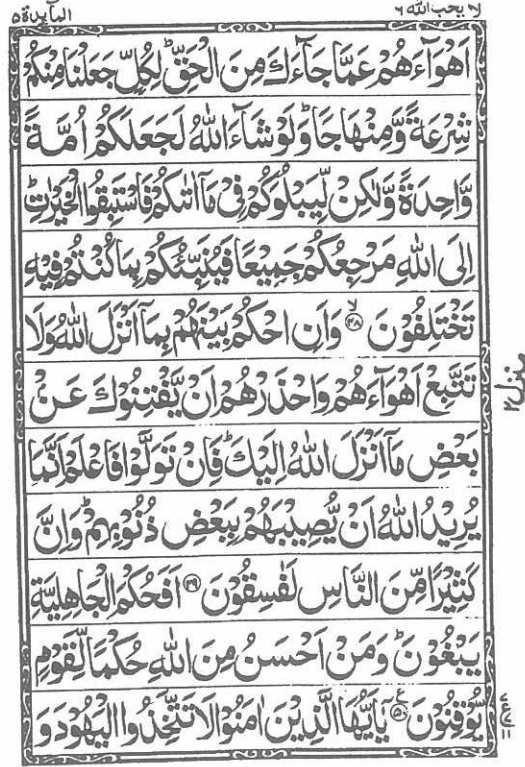 لا يحب الله ٦
المآىِٕدة ٥
اَهْوَآءَهُمْ عَمَّا جَآءَكَ مِنَ الْحَقِّ ؕ لِكُلٍّ جَعَلْنَا مِنْكُمْ
شِرْعَةً وَّمِنْهَاجًا ؕ وَلَوْ شَآءَ اللّٰهُ لَجَعَلَكُمْ اُمَّةً
وَّاحِدَةً وَّلٰكِنْ لِّيَبْلُوَكُمْ فِىْ مَاۤ اٰتٰىكُمْ فَاسْتَبِقُوا الْخَيْرٰتِ ؕ
اِلَى اللّٰهِ مَرْجِعُكُمْ جَمِيْعًا فَيُنَبِّئُكُمْ بِمَا كُنْتُمْ فِيْهِ
تَخْتَلِفُوْنَ ۙ‏﴿۴۸﴾ وَاَنِ احْكُمْ بَيْنَهُمْ بِمَاۤ اَنْزَلَ اللّٰهُ وَلَا
تَتَّبِعْ اَهْوَآءَهُمْ وَاحْذَرْهُمْ اَنْ يَّفْتِنُوْكَ عَنْۢ
بَعْضِ مَاۤ اَنْزَلَ اللّٰهُ اِلَيْكَ ؕ فَاِنْ تَوَلَّوْا فَاعْلَمْ اَنَّمَا
يُرِيْدُ اللّٰهُ اَنْ يُّصِيْبَهُمْ بِبَعْضِ ذُنُوْبِهِمْ ؕ وَاِنَّ
كَثِيْرًا مِّنَ النَّاسِ لَفٰسِقُوْنَ ﴿۴۹﴾ اَفَحُكْمَ الْجَاهِلِيَّةِ
يَبْغُوْنَ ؕ وَمَنْ اَحْسَنُ مِنَ اللّٰهِ حُكْمًا لِّقَوْمٍ
يُّوْقِنُوْنَ ﴿۵۰﴾ ع يٰۤاَيُّهَا الَّذِيْنَ اٰمَنُوْا لَا تَتَّخِذُوا الْيَهُوْدَ وَ
منزل ٢